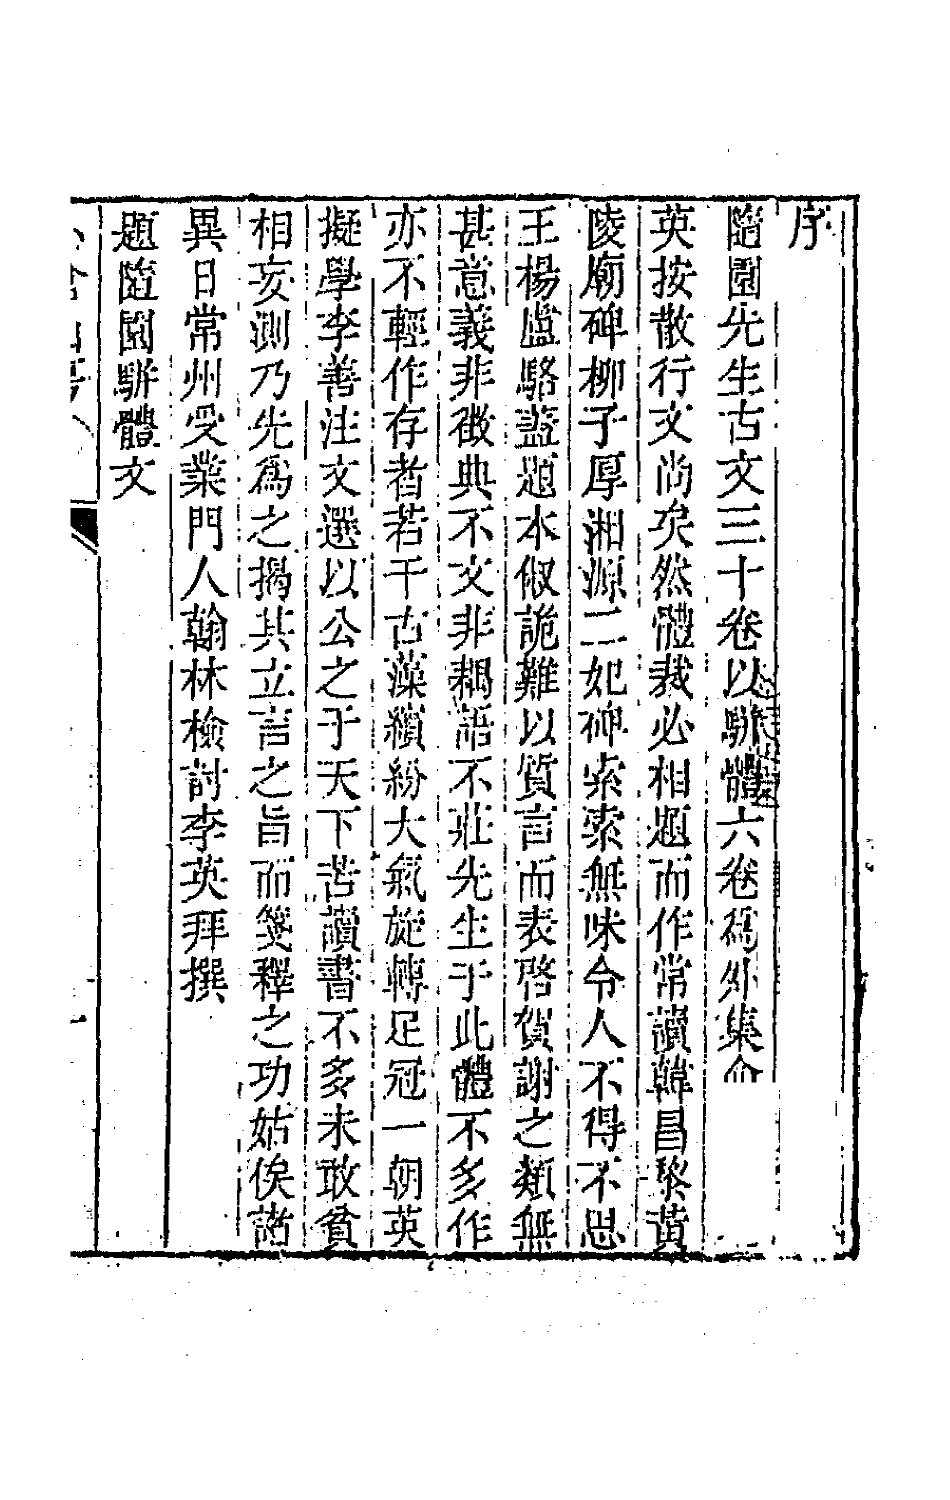 序
隨園先生古文三十卷以駢體六卷爲外集命
英按散行文尚矣然體裁必相題而作常讀韓昌黎黃
陵廟碑柳子厚湘源二妃碑索索無味令人不得不思
王楊盧駱蓋題本俶詭難以質言而表啓賀謝之類無
甚意義非徵典不文非耦語不莊先生于此體不多作
亦不輕作存者若干古藻繽紛大氣旋轉足冠一朝英
擬學李善注文選以公之于天下苦讀書不多未敢貿
相妄測乃先爲之揭其立言之旨而箋釋之功姑俟諸
異日常州受業門人翰林檢討李英拜撰
題隨園駢體文